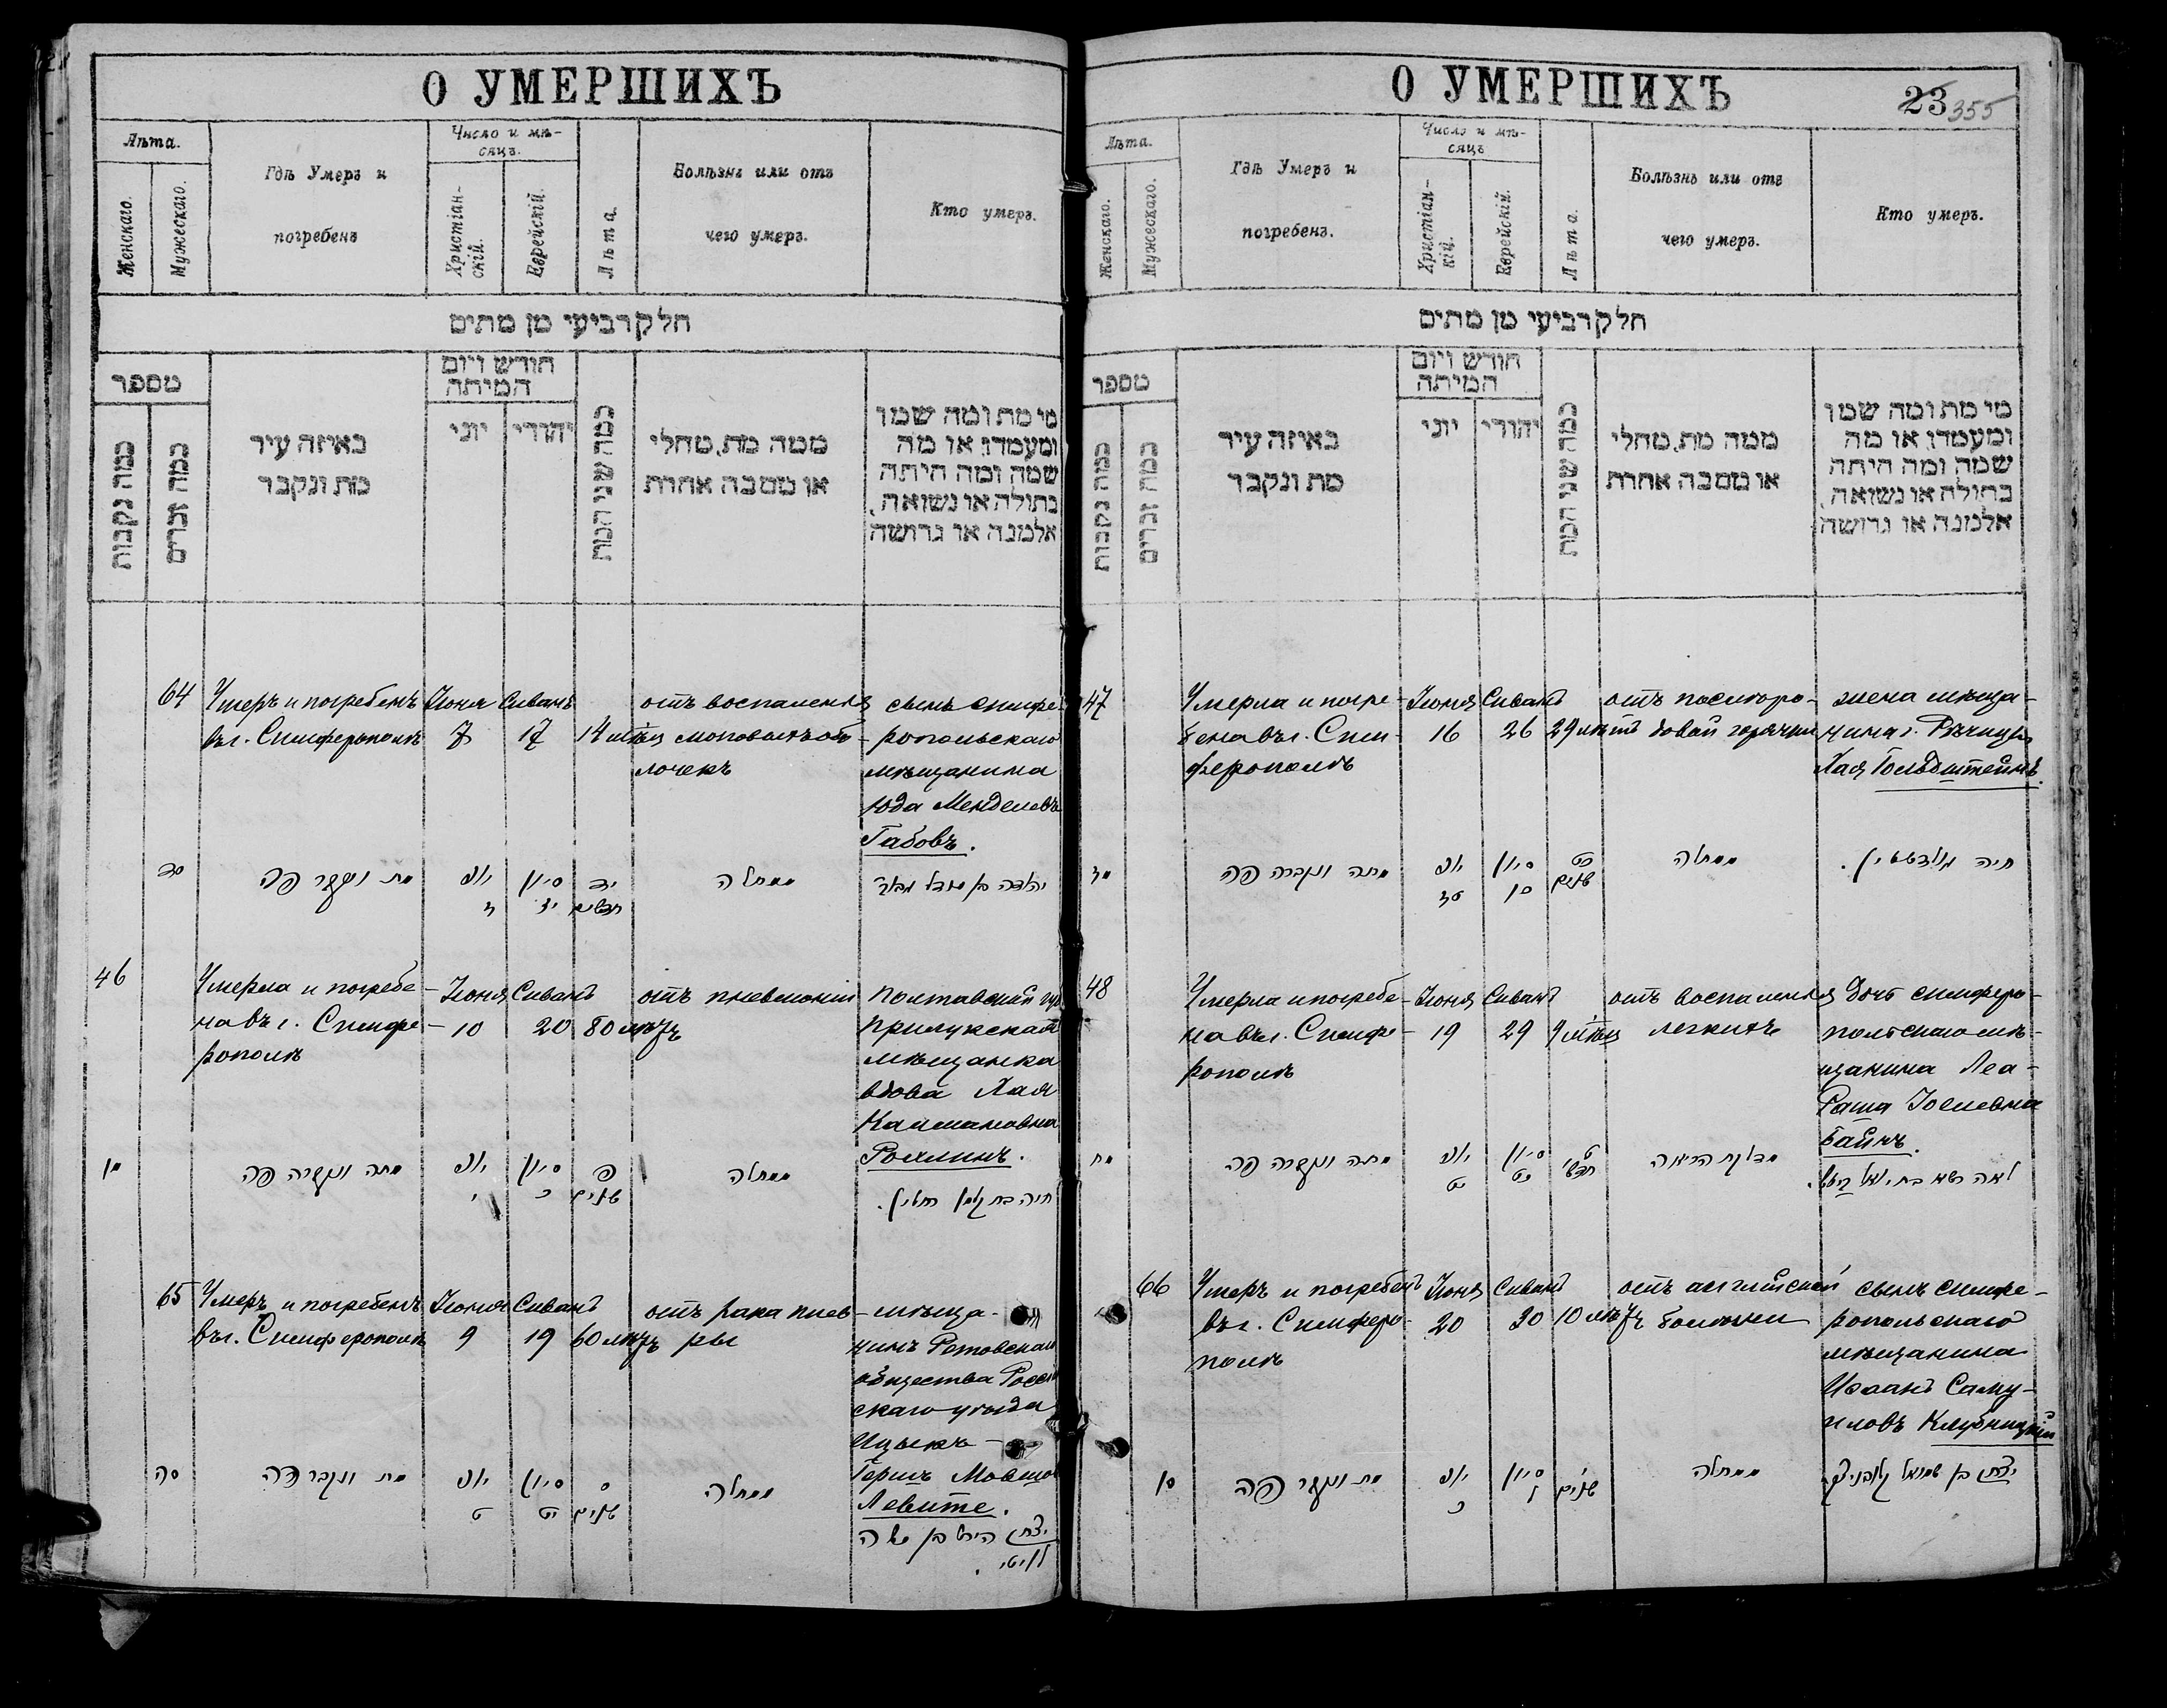 О УМЕРШИХЪ
Лѣта.
Женскаго.
Мужескаго.
Гдѣ Умеръ и
погребенъ
Число и мѣ-
сяцъ.
Христіан-
скій.
Еврейскій.
Лѣта.
Болѣзнь или отъ
чего умеръ.
Кто умеръ.
חלק רביעי מן מתים
מספר
כמה נקבות
כמה זכרים
באיזה עיר
מת ונקבר
חודש ויום
המיתה
יוני
יהודי
כמה שני המת
ממה מת, מחלי
או מסבה אחרת
מי מת ומה שמו
ומעמדו, או מה
שמה ומה היתה
בתולה או נשואה,
אלמנה או גרושה
64
Умеръ и погребенъ
въ г. Симферополѣ
Іюня
7
Сиванъ
17
14 мѣц
отъ воспаленія
мозговыхъ обо-
лочекъ
сынъ симфе-
ропольскаго
мѣщанина
Юда Менделевъ
Габовъ.
סד
מת ונקבר פה
יוני
ז
סיון
יז
יד
חדשים
ממחלה
יהודה בן מנדל
46
Умерла и погребе-
на въ г. Симфе-
рополѣ
Іюня
10
Сиванъ
20
80 лѣтъ
отъ пневмоніи
Полтавской губ
Прилукская
мѣщанка
вдова Хая
Калмановна
Роялинъ.
מו
מתה ונקברה פה
יוני
י
סיון
כ
פ
שנים
ממחלה
חיה בת קלמן
65
Умеръ и погребенъ
въ г. Симферополѣ
Іюня
9
Сиванъ
19
60 лѣтъ
отъ рака плев-
ры
мѣща-
нинъ Ретовскаго
общества Россіен
скаго уѣзда
Ицыкъ-
Гершъ Мовшов
Левите.
סה
מת ונקבר פה
יוני
ט
סיון
יט
ס
שנים
ממחלה
יצחק הירש בן משה
לוויטי.
О УМЕРШИХЪ
23 355
Лѣта.
Женскаго.
Мужескаго.
Гдѣ Умеръ и
погребенъ.
Число и мѣ-
сяцъ
Христіан-
кій.
Еврейскій.
Лѣта.
Болѣзнь или отъ
чего умеръ.
Кто умеръ.
חלק רביעי מן מתים
מספר
כמה נקבות
כמה זכרים
באיזה עיר
מת ונקבר
חודש ויום
המיתה
יוני
יהודי
כמה שני המת
ממה מת, מחלי
או מסבה אחרת
מי מת ומה שמו
ומעמדו, או מה
שמה ומה היתה
בתולה או נשואה,
אלמנה או גרושה
47
Умерла и погре-
бена въ г. Сим-
ферополѣ
Іюня
16
Сиванъ
26
29 лѣтъ
отъ послѣро-
довой горячки
жена мѣща-
нина г. Рѣчицы
Хая Гольдштейнъ.
מז
מתה ונקברה פה
יוני
טז
סיון
כו
כט
שנים
ממחלה
חיה גולדשטיין.
48
Умерла и погребе-
на въ г. Симфе-
рополѣ
Іюня
19
Сиванъ
29
9 мѣц
отъ воспаленія
легкихъ
дочь симферо-
польскаго мѣ-
щанина Леа-
Раша Іоелевна
Байнъ.
מח
מתה ונקברה פה
יוני
יט
סיון
כט
ט
חדשי
מדלקת הריאה
לאה רשא בת יואל
66
Умеръ и погребенъ
въ г. Симферо-
полѣ
Іюня
20
Сиванъ
30
10 лѣтъ
отъ англійской
болѣзни
сынъ симфе-
ропольскаго
мѣщанина
Исаакъ Саму-
иловъ Клубницкій
סו
מת ונקבר פה
יוני
כ
סיון
ל
י
שנים
ממחלה
יצחק בן שמואל קלובניצקי